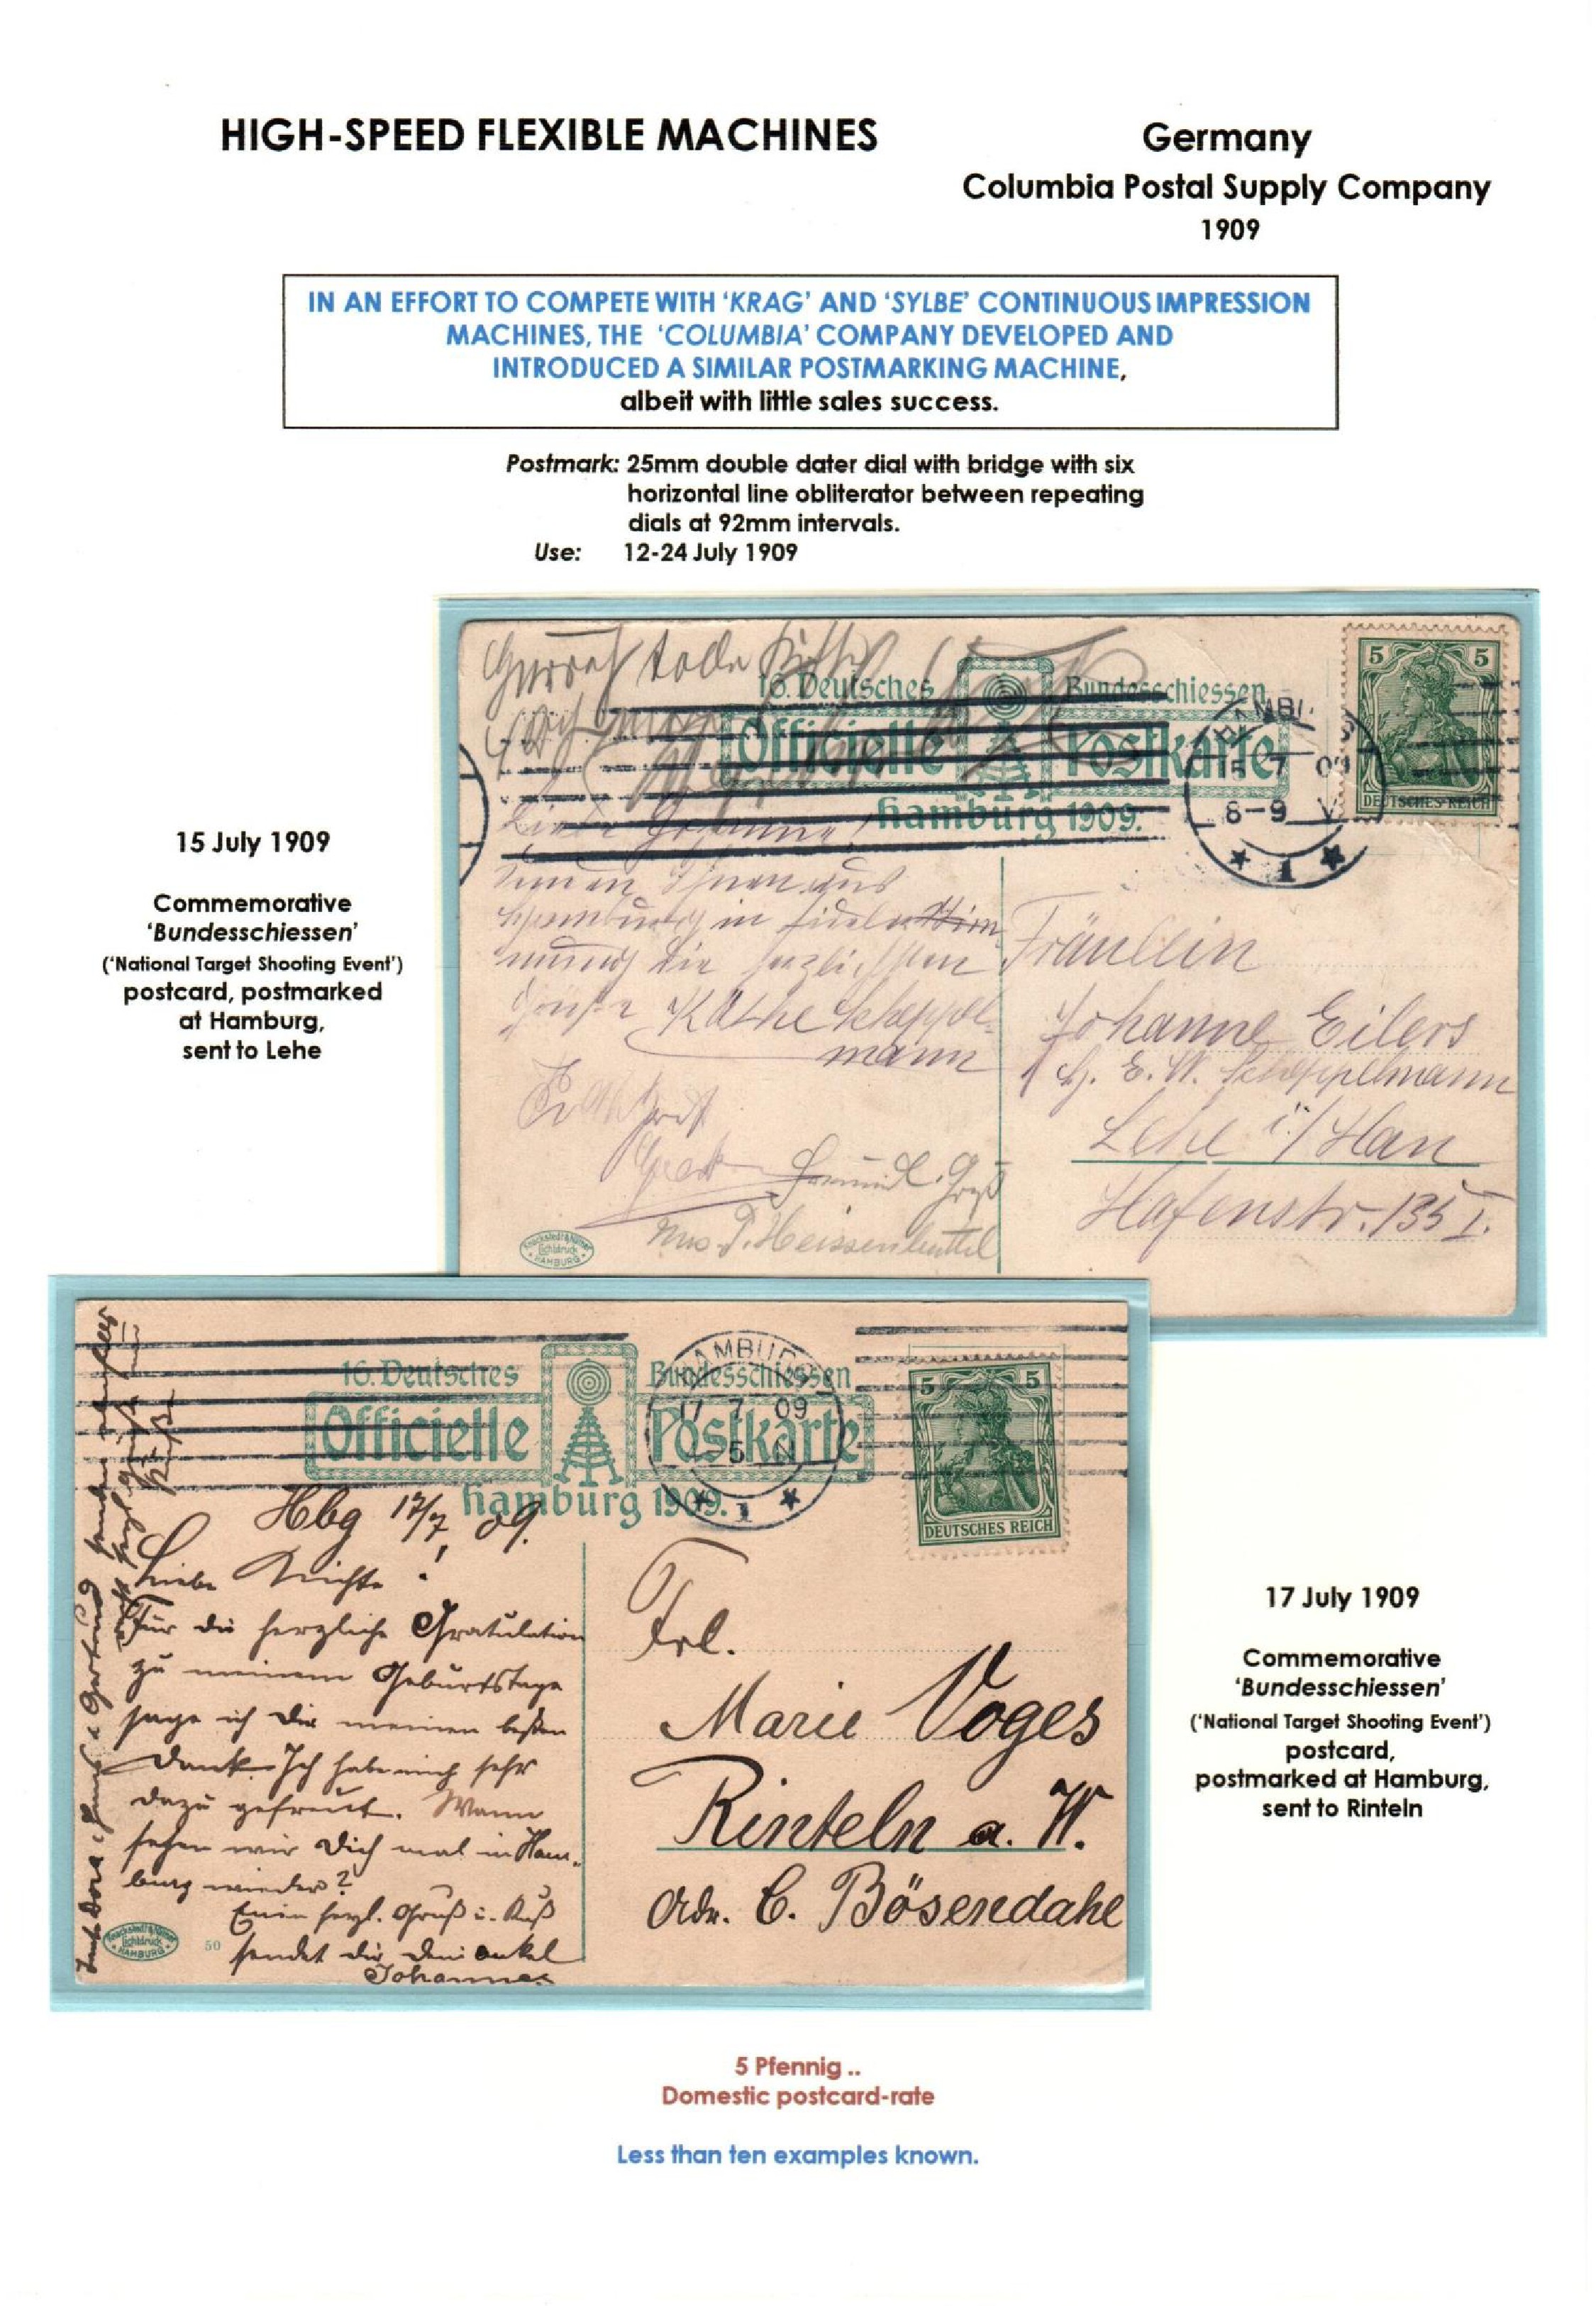 HIGH-SPEED FLEXIBLE MACHINES
Germany
Columbia Postal Supply Company
1909
IN AN EFFORT TO COMPETE WITH ‘KRAG’ AND ‘SYLBE’ CONTINUOUS IMPRESSION
MACHINES, THE ‘COLUMBIA’ COMPANY DEVELOPED AND
INTRODUCED A SIMILAR POSTMARKING MACHINE,
albeit with little sales success.
Postmark: 25mm double dater dial with bridge with six
horizontal line obliterator between repeating
dials at 92mm intervals.
Use: 12-24 July 1909
16. Deutsches Bundesschiessen
Officielle Postkarte
Hamburg 1909.
5 5
DEUTSCHES REICH
15 7 09
8-9 V
* 1 *
Käthe Scheppel-
mann
Fräulein
Johanne Eilers
E. W. Scheppelmann
Lehe i/Han
Hafenstr. 135 I.
Knackstedt & Näther
Lichtdruck
HAMBURG
15 July 1909
Commemorative
‘Bundesschiessen’
(‘National Target Shooting Event’)
postcard, postmarked
at Hamburg,
sent to Lehe
16. Deutsches Bundesschiessen
Officielle Postkarte
Hamburg 1909.
HAMBURG
17 7 09
5 N
* 1 *
5 5
DEUTSCHES REICH
Hbg 17/7 09.
Liebe Nichte!
Für die herzliche Gratulation
zu meinem Geburtstage
sage ich Dir meinen besten
Dank. Ich habe mich sehr
dazu gefreut. Wann
sehen wir Dich mal in Ham-
burg wieder?
herzl. Gruß u. Kuß
sendet dir Dein onkel
Johannes
Frl.
Marie Voges
Rinteln a. W.
Adr. C. Bösendahl
Knackstedt & Näther
Lichtdruck
HAMBURG
50
17 July 1909
Commemorative
‘Bundesschiessen’
(‘National Target Shooting Event’)
postcard,
postmarked at Hamburg,
sent to Rinteln
5 Pfennig ..
Domestic postcard-rate
Less than ten examples known.